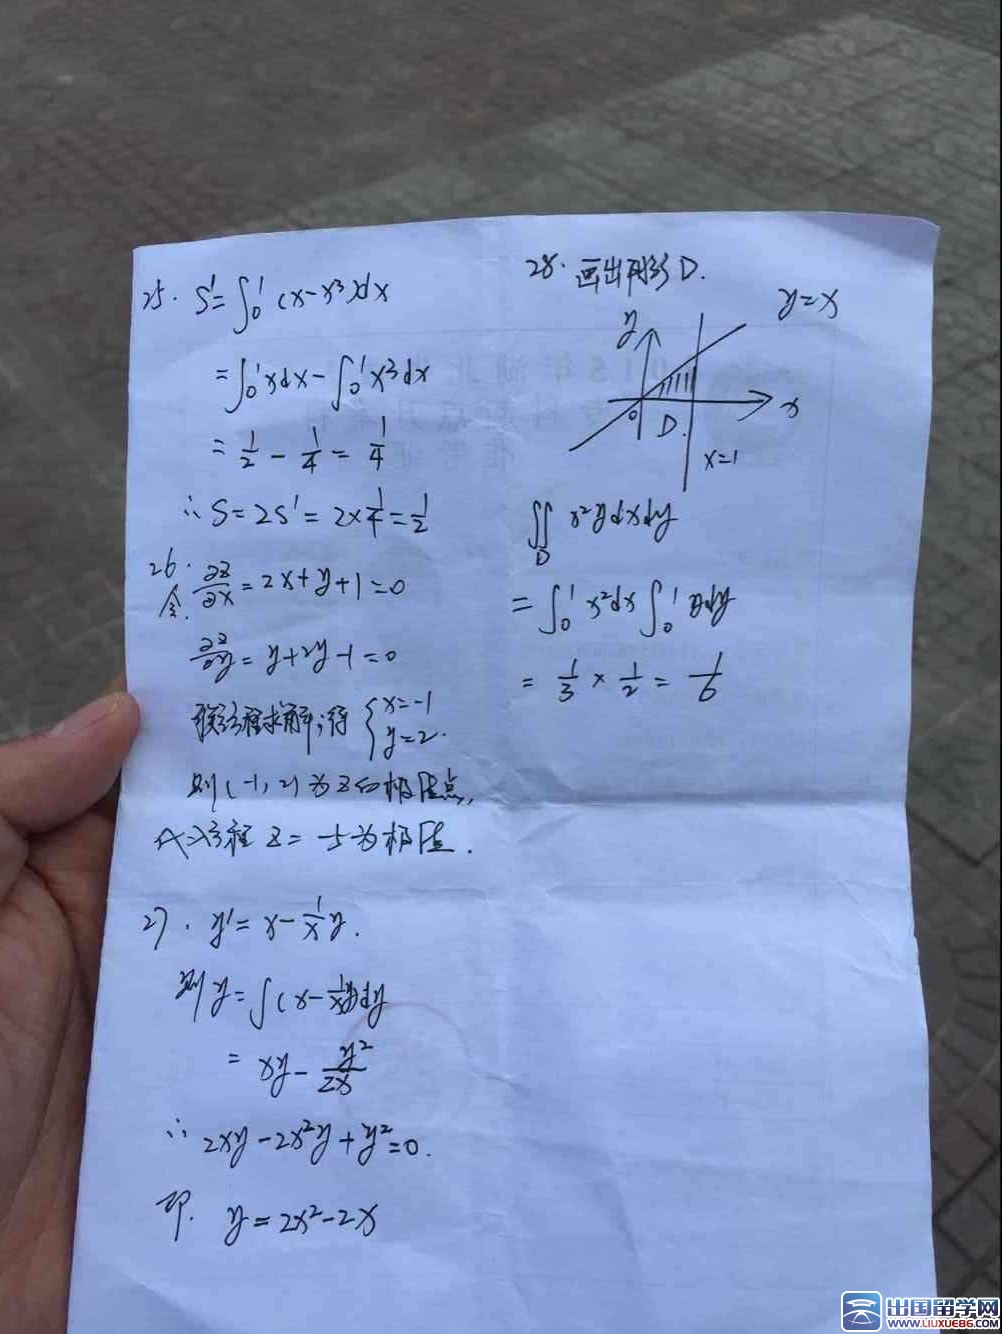 25. S'=∫₀¹(x-x³)dx
=∫₀¹xdx-∫₀¹x³dx
=1/2-1/4=1/4
∴S=2S'=2×1/4=1/2
26.
令. ∂z/∂x=2x+y+1=0
∂z/∂y=y+2y-1=0
联立方程求解,得{x=-1
y=2.
则(-1,2)为z的极值点,
代入方程z=-5为极值.
27. y'=x-1/x y.
则y=∫(x-1/x y)dy
=xy-y²/2x
∴2xy-2x²y+y²=0.
即. y=2x²-2x
28. 画出图形D.
y=x
y
x
0
D.
x=1
∬D x²ydxdy
=∫₀¹x²dx∫₀¹ydy
=1/3×1/2=1/6
出国留学网
WWW.LIUXUE86.COM